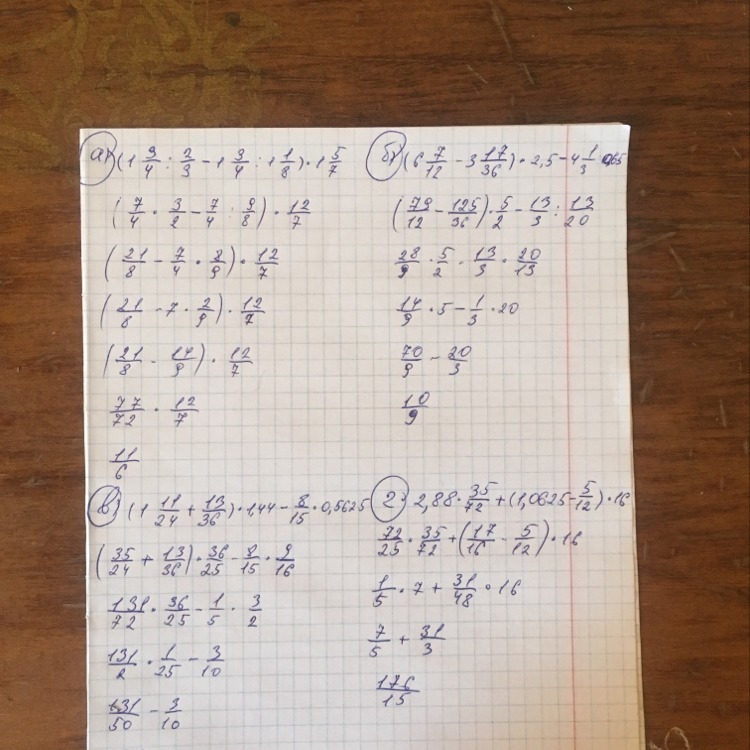 а) (1 3/4 : 2/3 - 1 3/4 : 1 1/8) · 1 5/7
(7/4 · 3/2 - 7/4 : 9/8) · 12/7
(21/8 - 7/4 · 8/9) · 12/7
(21/8 - 7 · 2/9) · 12/7
(21/8 - 14/9) · 12/7
77/72 · 12/7
11/6
б) (6 7/12 - 3 17/36) · 2,5 - 4 1/3 : 0,65
(79/12 - 125/36) · 5/2 - 13/3 : 13/20
28/9 · 5/2 - 13/3 · 20/13
14/9 · 5 - 1/3 · 20
70/9 - 20/3
10/9
в) (1 11/24 + 13/36) · 1,44 - 8/15 · 0,5625
(35/24 + 13/36) · 36/25 - 8/15 · 9/16
131/72 · 36/25 - 1/5 · 3/2
131/2 · 1/25 - 3/10
131/50 - 3/10
г) 2,88 · 35/72 + (1,0625 - 5/12) · 16
72/25 · 35/72 + (17/16 - 5/12) · 16
1/5 · 7 + 31/48 · 16
7/5 + 31/3
176/15